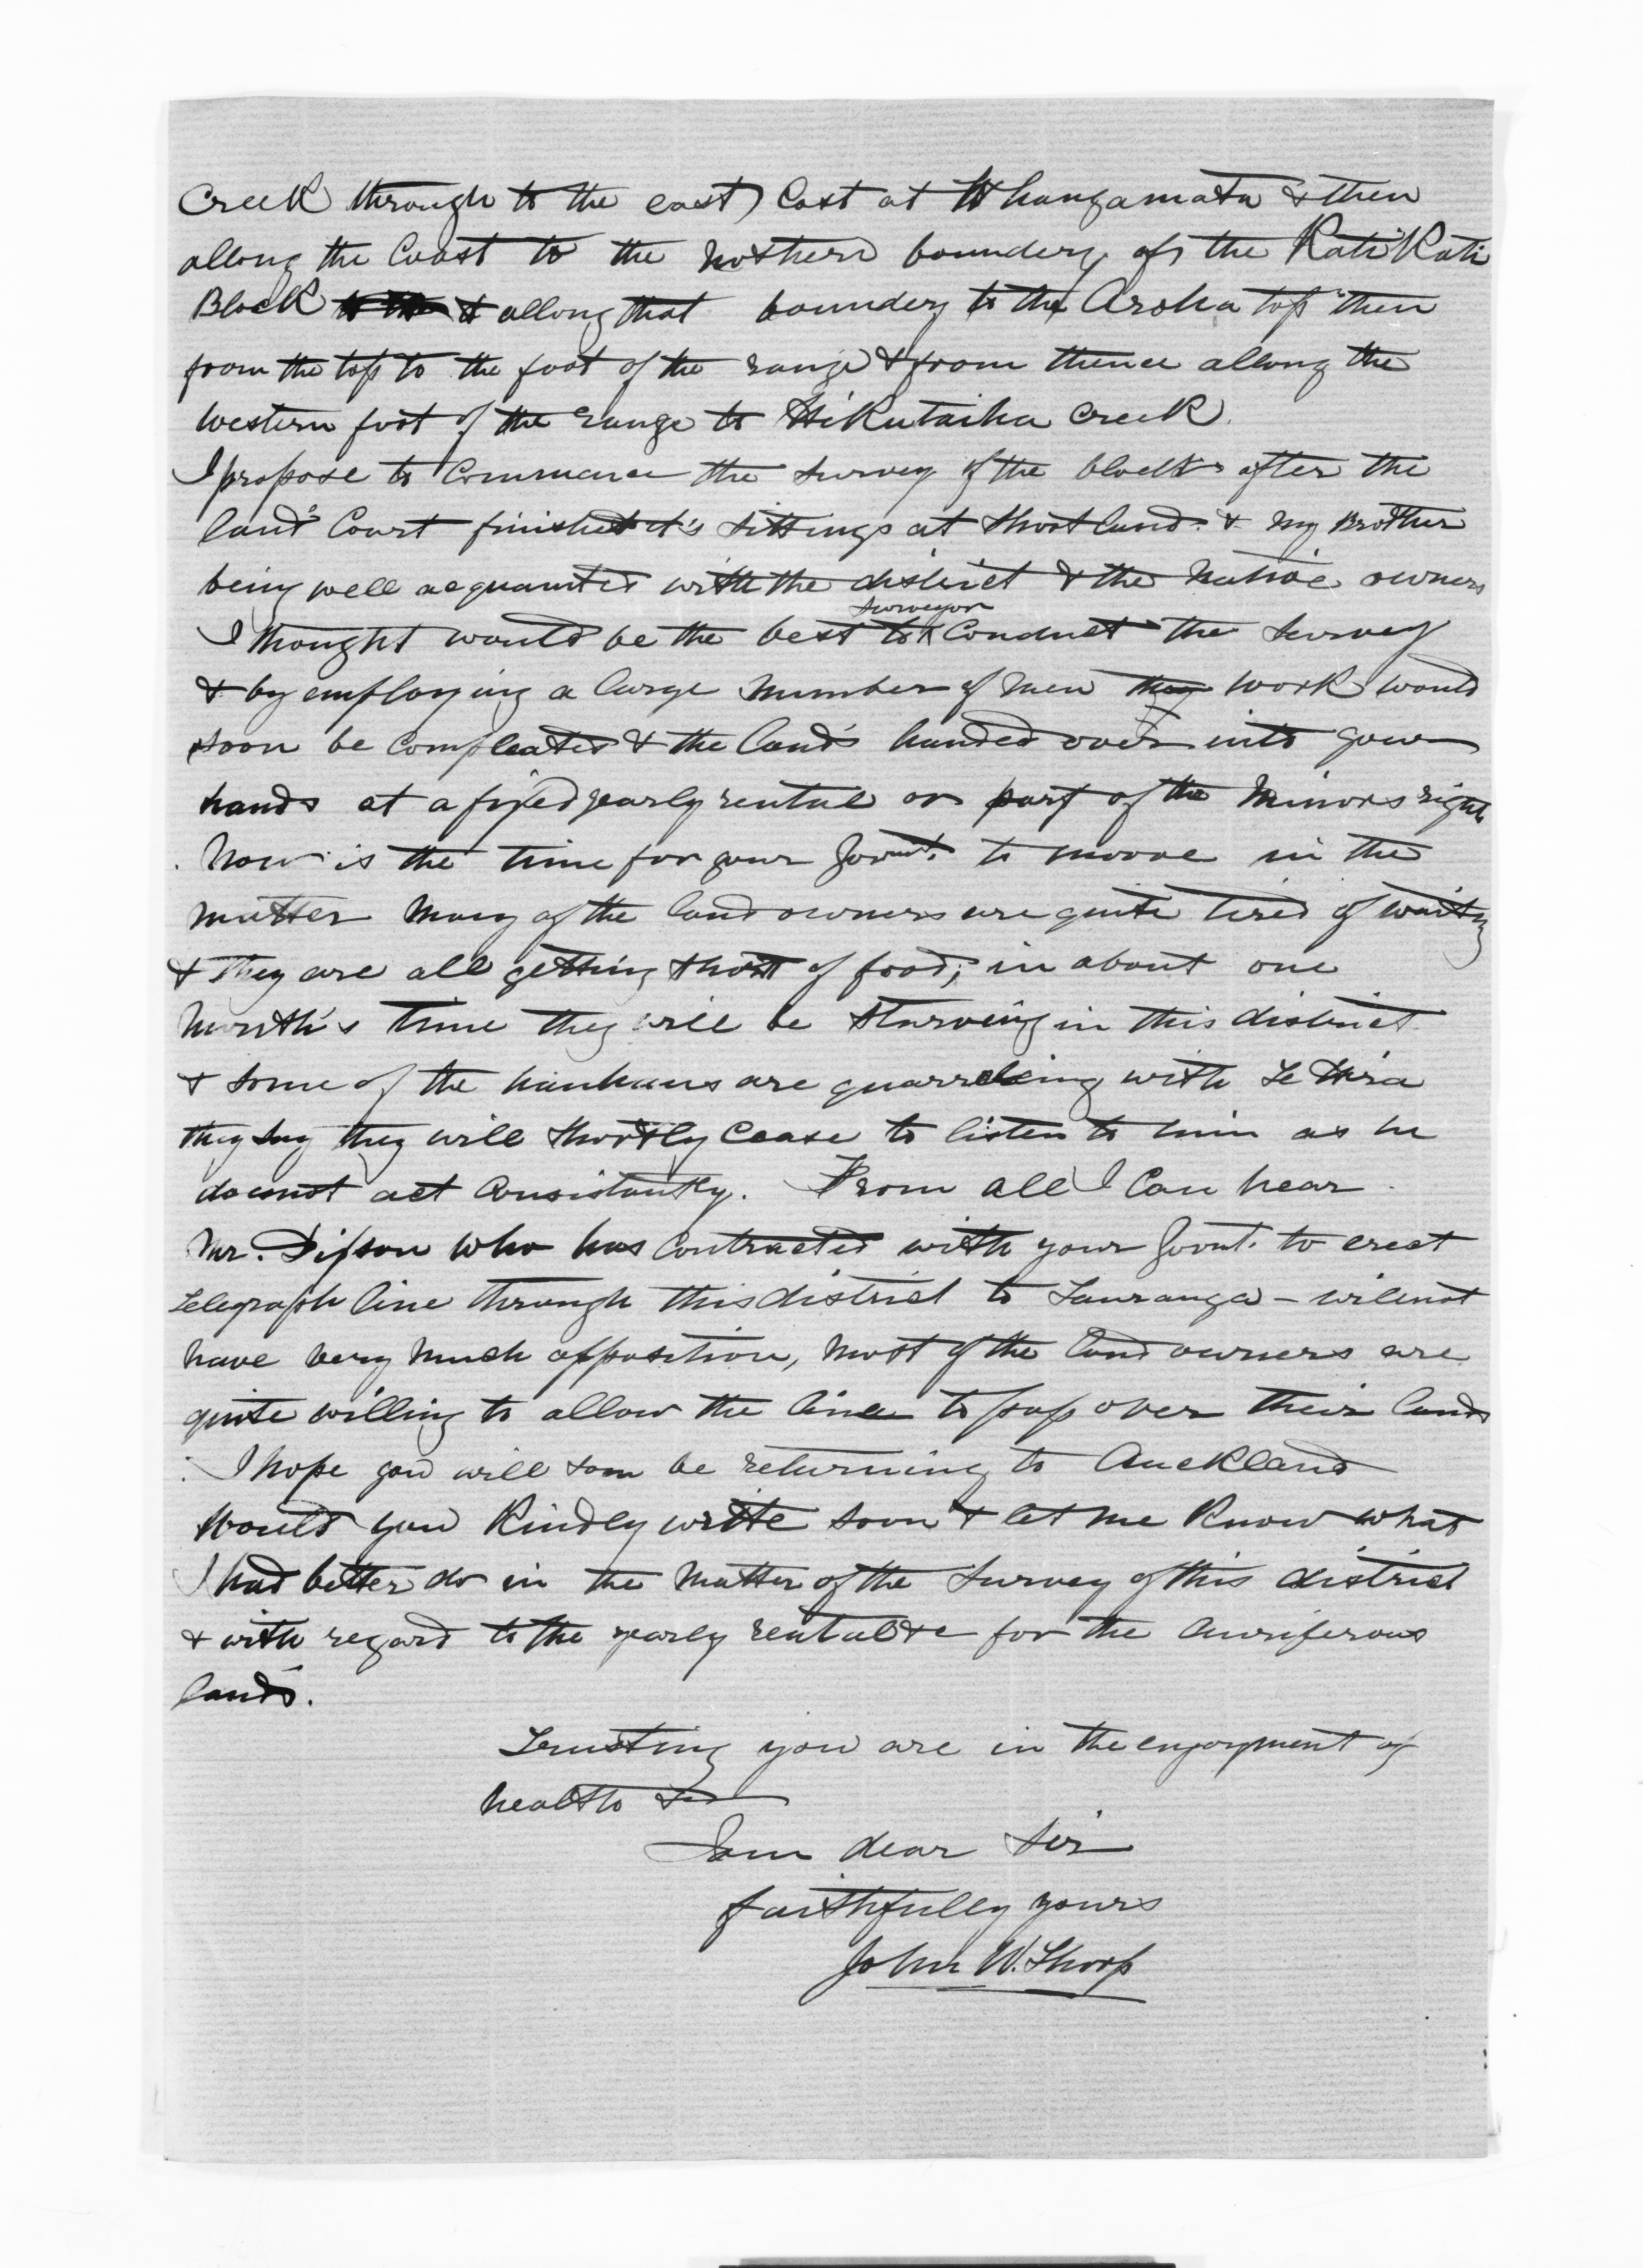 Creek through to the east Cost at Whangamata & then
allong the Coast to the nothern boundery of the KatiKati
Block & allong that boundery to the Aroha top then
from the top to the foot of the range & from thence allong the
western foot of the range to HiKutaiha Creek.
I propose to Commence the survey of the block after the
land Court finished it's sittings at Shortland. & my Brother
being well acquainted with the district & the native owners
I thought would be the best surveyor to Conduct the survey
& by employing a large number of men they work would
soon be Compleated & the lands handed over into your
hands at a fixed yearly rental or part of the Minors right
. Now is the time for your Govmt. to moove in the
matter Many of the land owners are quite tired of waiting
& they are all getting short of food; in about one
month's time they will be starveing in this district
& some of the hauhaus are quarreleing with Te Hira
they say they will shortly Cease to listen to him as he
does not act Consistantly. From all I Can hear
Mr. who has Contracted with your Govnt. to erect
Telegraph line through this district to Tauranga - will not
have very much opposition, most of the land owners are
quite willing to allow the line to pass over their lands
. I hope you will soon be returning to Auckland
Would you Kindly write soon & let me Know what
I had better do in the matter of the survey of this district
& with regard to the yearly rental &c for the Auriferous
lands.
Trusting you are in the enjoyment of
health &c
I am dear Sir
faithfully yours
John W. Thorp